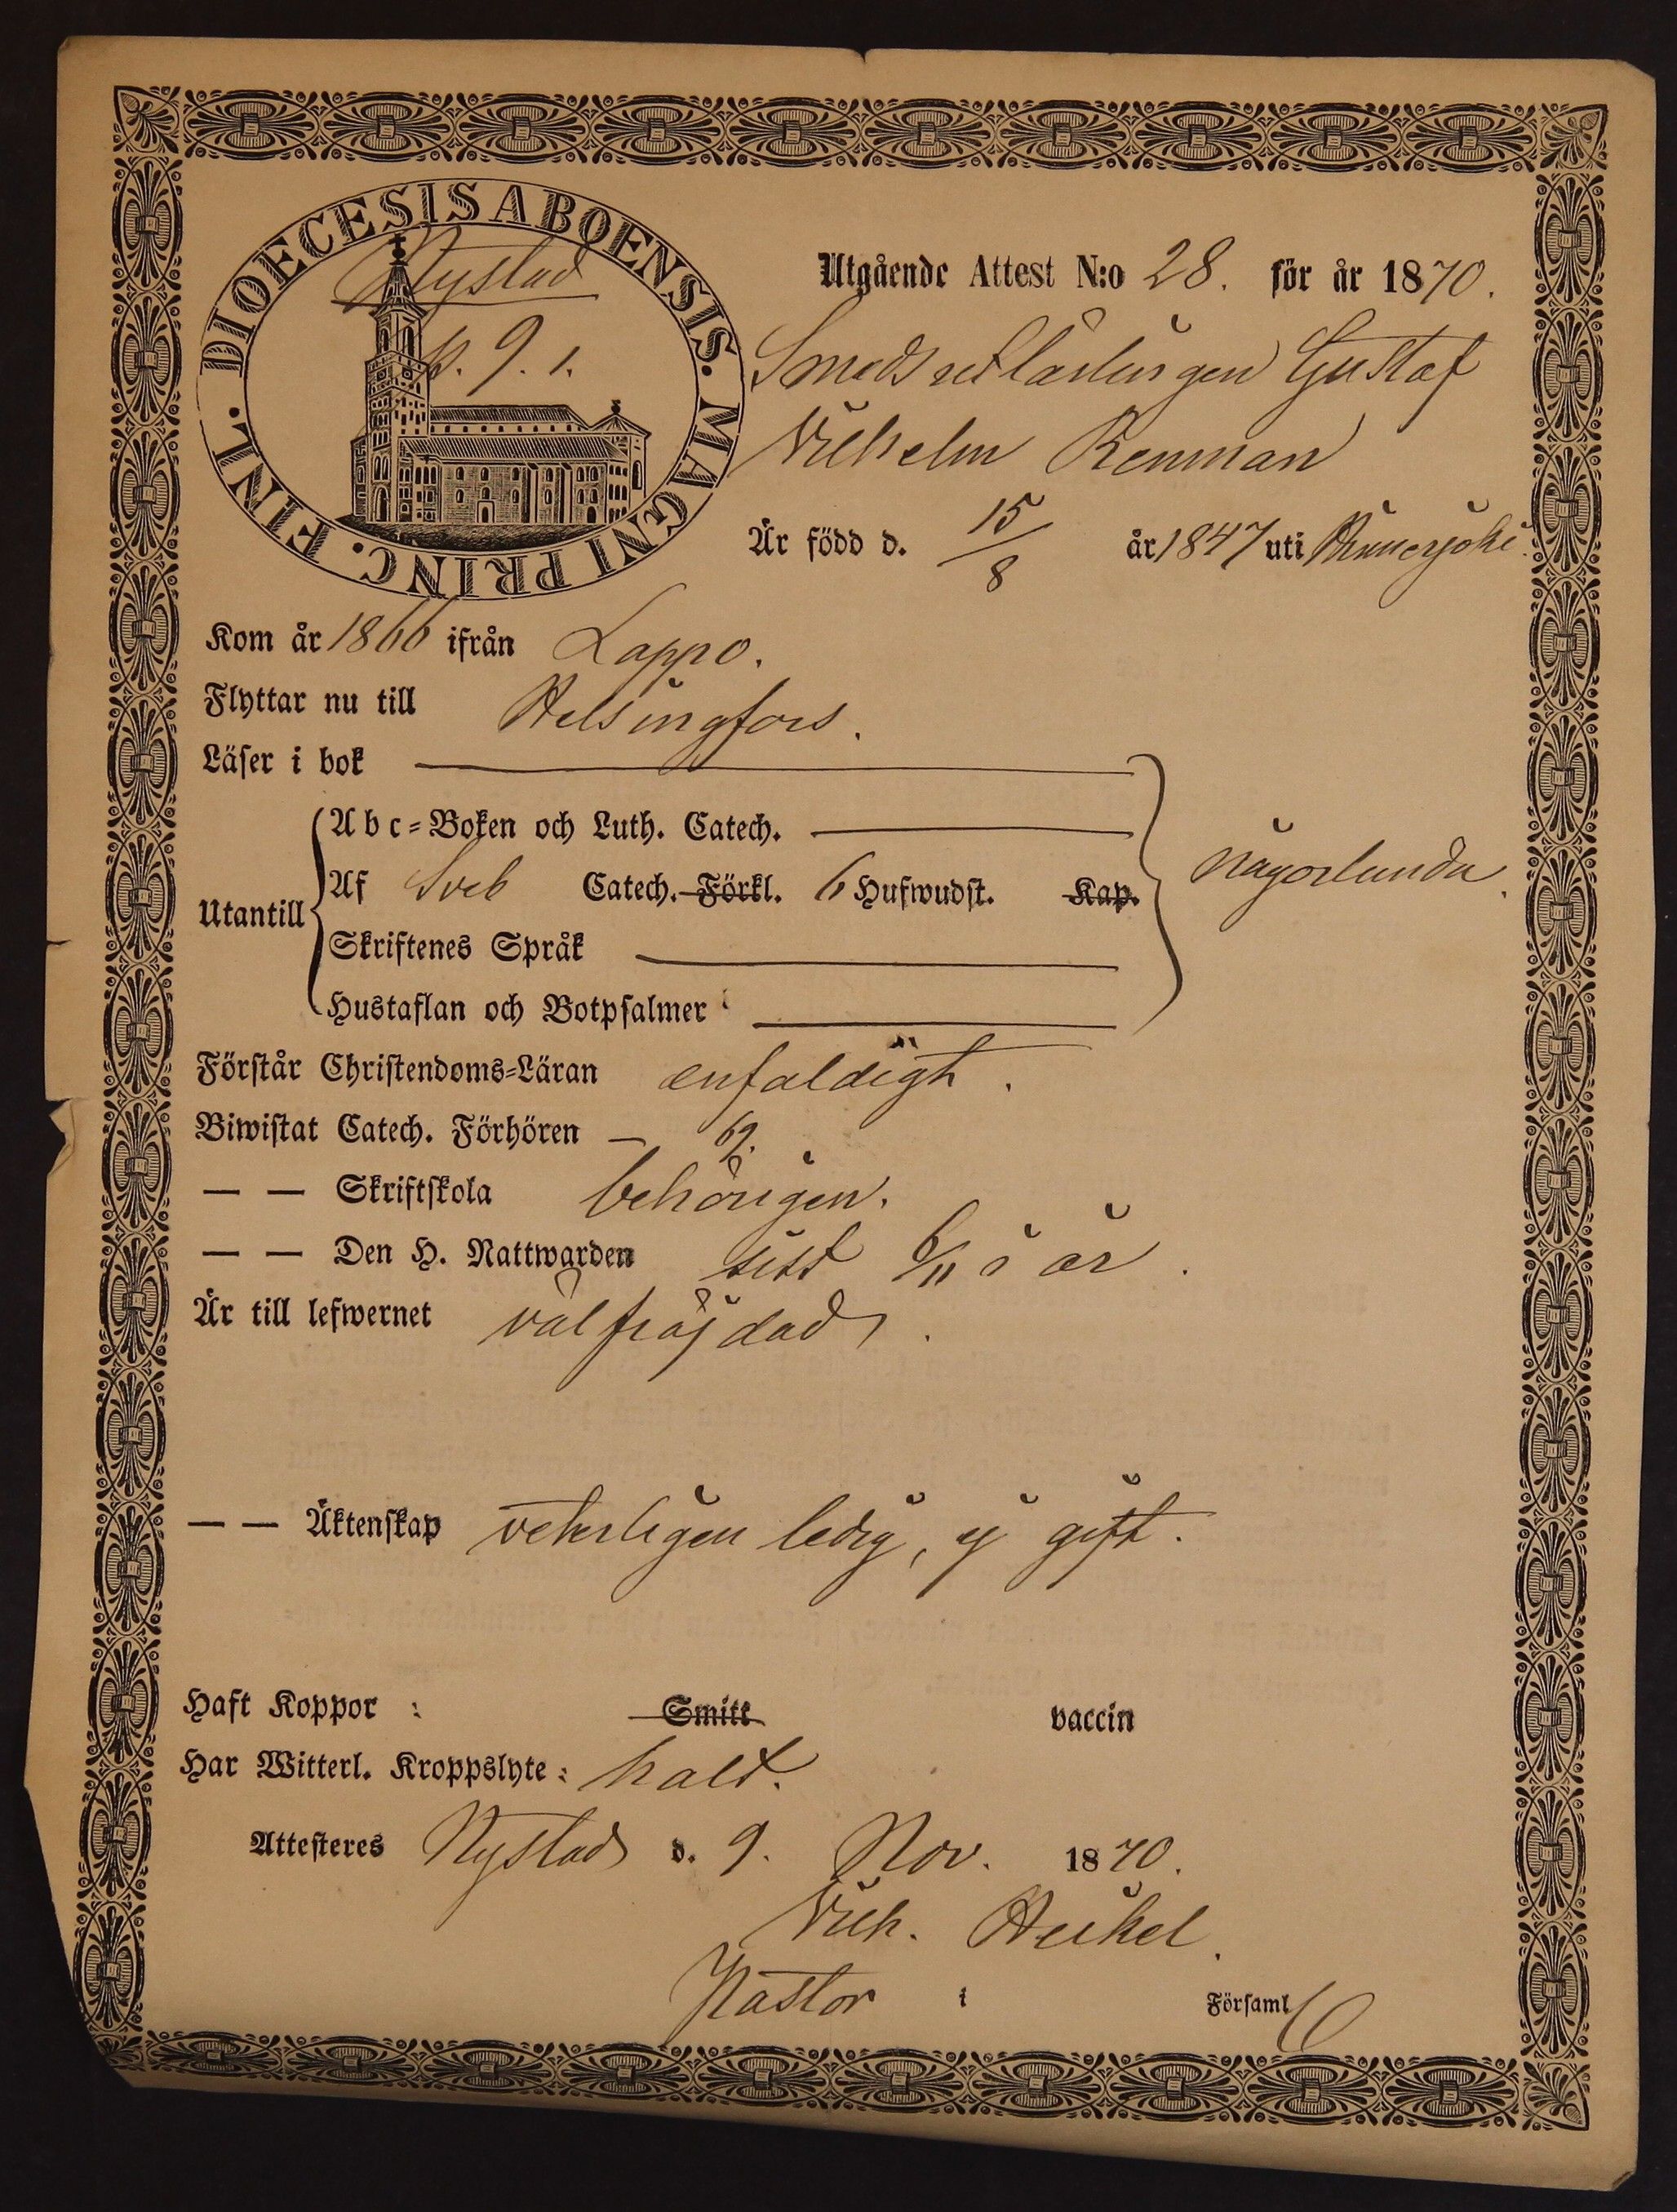 DIOECESIS ABOENSIS. MAGNI PRINC. FINL.
Nystad
p. 9. 1.
Utgående Attest N:o 28. för år 1870.
Gustaf
Vilhelm Renman
Är född d. 15/8 år 1847 uti
Kom år 1866 ifrån Lappo.
Flyttar nu till Helsingfors.
Läser i bok
Abc-Boken och Luth. Catech.
Utantill
Af Sveb Catech. Förkl. 6 Hufwudst. Kap.
någorlunda.
Skriftenes Språk
Hustaflan och Botpsalmer
Förstår Christendoms-Läran enfaldigt.
Biwistat Catech. Förhören — 69.
— — Skriftskola behörigen.
— — Den H. Nattwarden sist 6/11 i år.
Är till lefwernet välfräjdad.
— — Äktenskap veterligen ledig, ej gift.
Haft Koppor : Smitt vaccin
Har Witterl. Kroppslyte: halt.
Attesteres Nystad d. 9. Nov. 1870.
Vilh. Heikel.
Pastor i Församl